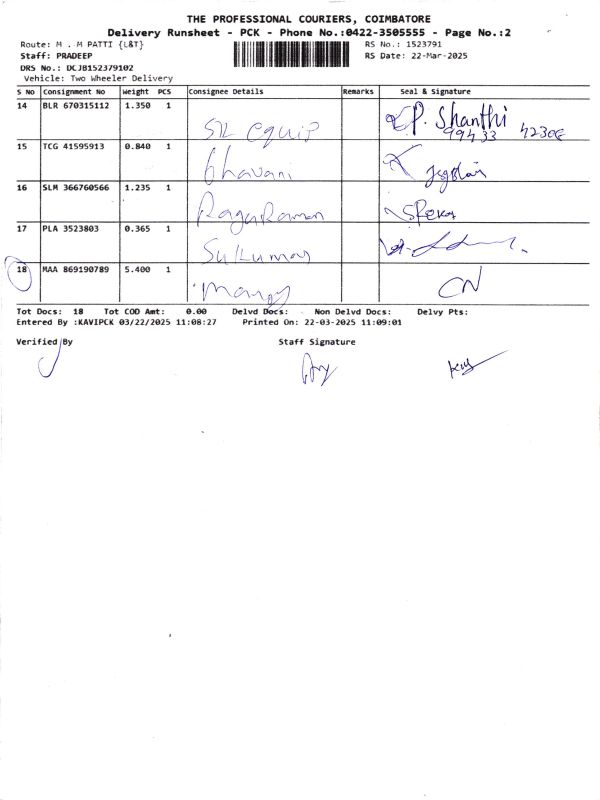 THE PROFESSIONAL COURIERS, COIMBATORE
Delivery Runsheet - PCK - Phone No.:0422-3505555 - Page No.:2
Route: M . M PATTI {L&T} RS No.: 1523791
Staff: PRADEEP RS Date: 22-Mar-2025
DRS No.: DCJB152379102
Vehicle: Two Wheeler Delivery
S No Consignment No Weight PCS Consignee Details Remarks Seal & Signature
14 BLR 670315112 1.350 1 equip P. Shanthi
99433
15 TCG 41595913 0.840 1 bhavani
16 SLM 366760566 1.235 1 RagaRaman
17 PLA 3523803 0.365 1 Sukumar
18 MAA 869190789 5.400 1 CN
Tot Docs: 18 Tot COD Amt: 0.00 Delvd Docs: Non Delvd Docs: Delvy Pts:
Entered By :KAVIPCK 03/22/2025 11:08:27 Printed On: 22-03-2025 11:09:01
Verified By Staff Signature